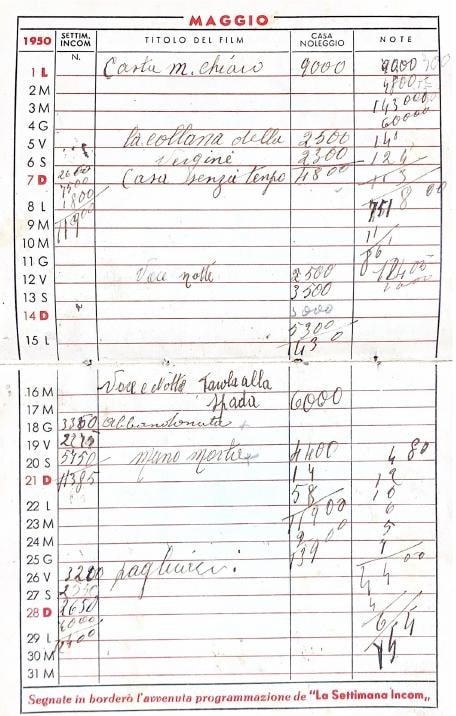 MAGGIO
1950 SETTIM. INCOM N. TITOLO DEL FILM CASA NOLEGGIO NOTE
1 L Casta m. chiaro 9000 9000
2 M 4800
3 M 143000
4 G 60000
5 V la collana della 2500 14
6 S vergine 2300 124
7 D Casa senza tempo 4800 113
7500
8 L 1800 751 8 00
9 M 11900 11
10 M 661
11 G
12 V Voce notte 2500 12405
13 S 3500
14 D 3000
5300
15 L 1430
16 M Voce e notte Tavola alla
17 M spada 6000
18 G 3350 abbandonata
19 V 2275
20 S 5750 mano morta 4400 4 80
21 D 11385 14 12
22 L 58 10
11900 6
23 M 9 00 5
24 M
25 G 139
26 V 3200 pagliacci. 44
27 S 2550
28 D 2650 4
6000 6,5
29 L
30 M 15
31 M
Segnate in borderò l'avvenuta programmazione de "La Settimana Incom„